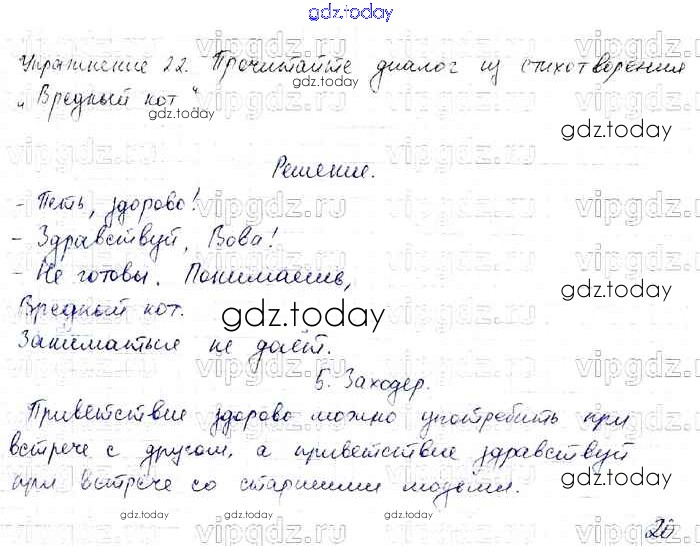 gdz.today
Упражнение 22. Прочитайте диалог из стихотворения
„Вредный кот“.
gdz.today
gdz.today
Решение.
- Петь, здорово!
- Здравствуй, Вова!
- Не готовы. Понимаешь,
Вредный кот.
gdz.today
Заниматься не даёт.
Б. Заходер.
Приветствие здорово можно употребить при
встрече с другом, а приветствие здравствуй
при встрече со старшими людьми.
gdz.today
gdz.today
gdz.today
20